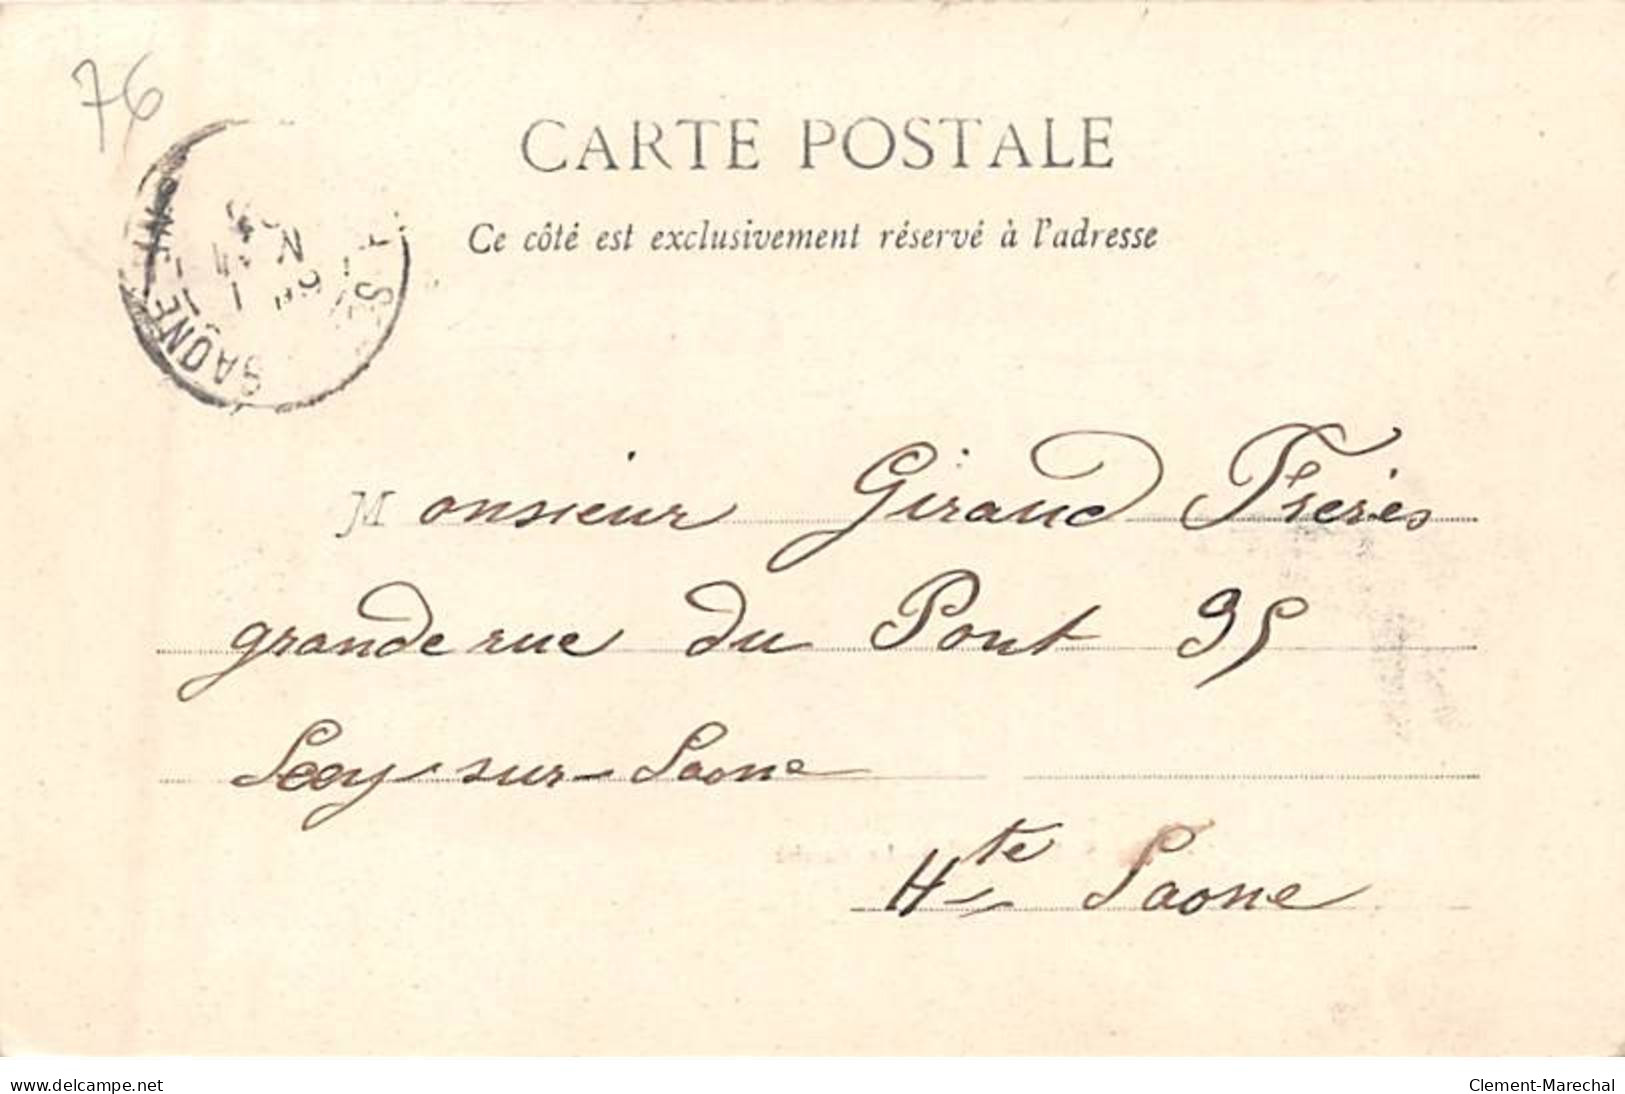 76
CARTE POSTALE
Ce côté est exclusivement réservé à l'adresse
SAONE
Monsieur Giraud Frères
grande rue du Pont 95
Scey-sur-Saone
Hte Saone
www.delcampe.net
Clement-Marechal